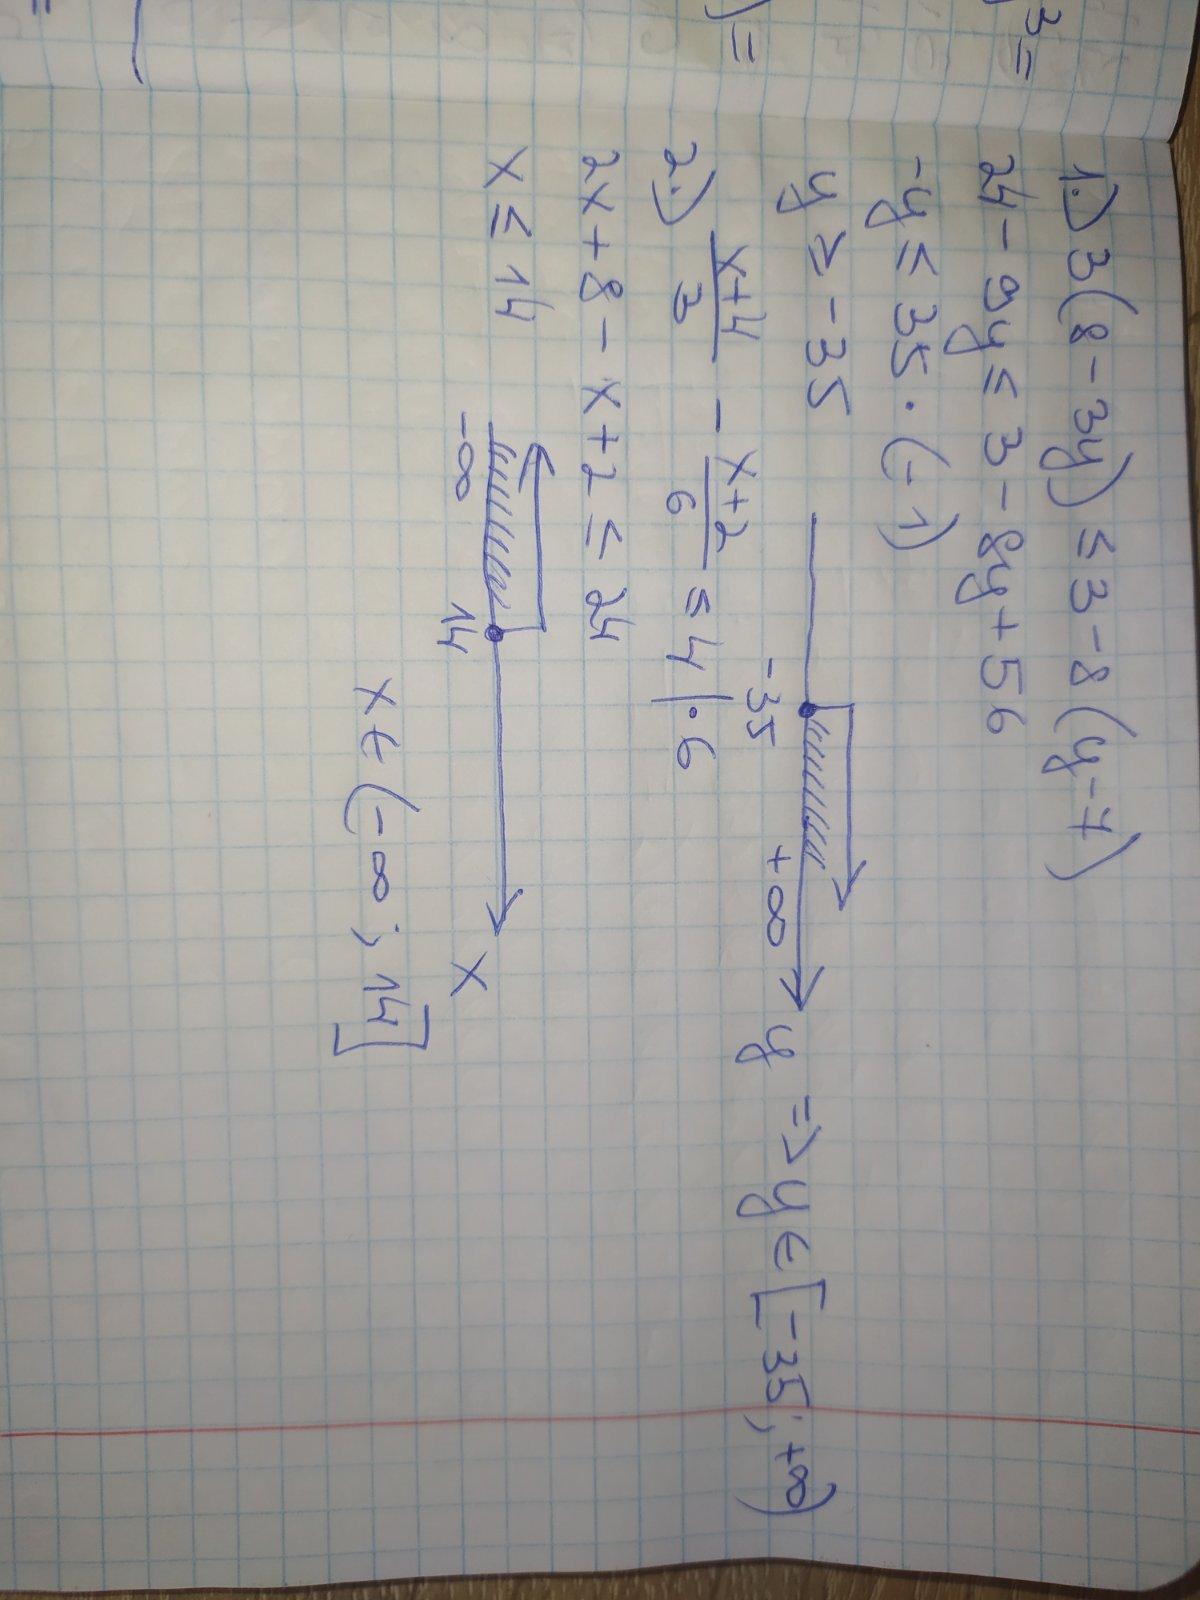 3=
)=
=
1.) 3(8-3y) ≤ 3-8(y-7)
24-9y ≤ 3-8y+56
-y ≤ 35 · (-1)
y ≥ -35
-35 +∞ y => y ∈ [-35; +∞)
2.) (x+4)/3 - (x+2)/6 ≤ 4 | · 6
2x+8-x+2 ≤ 24
x ≤ 14
-∞ 14 x
x ∈ (-∞; 14]